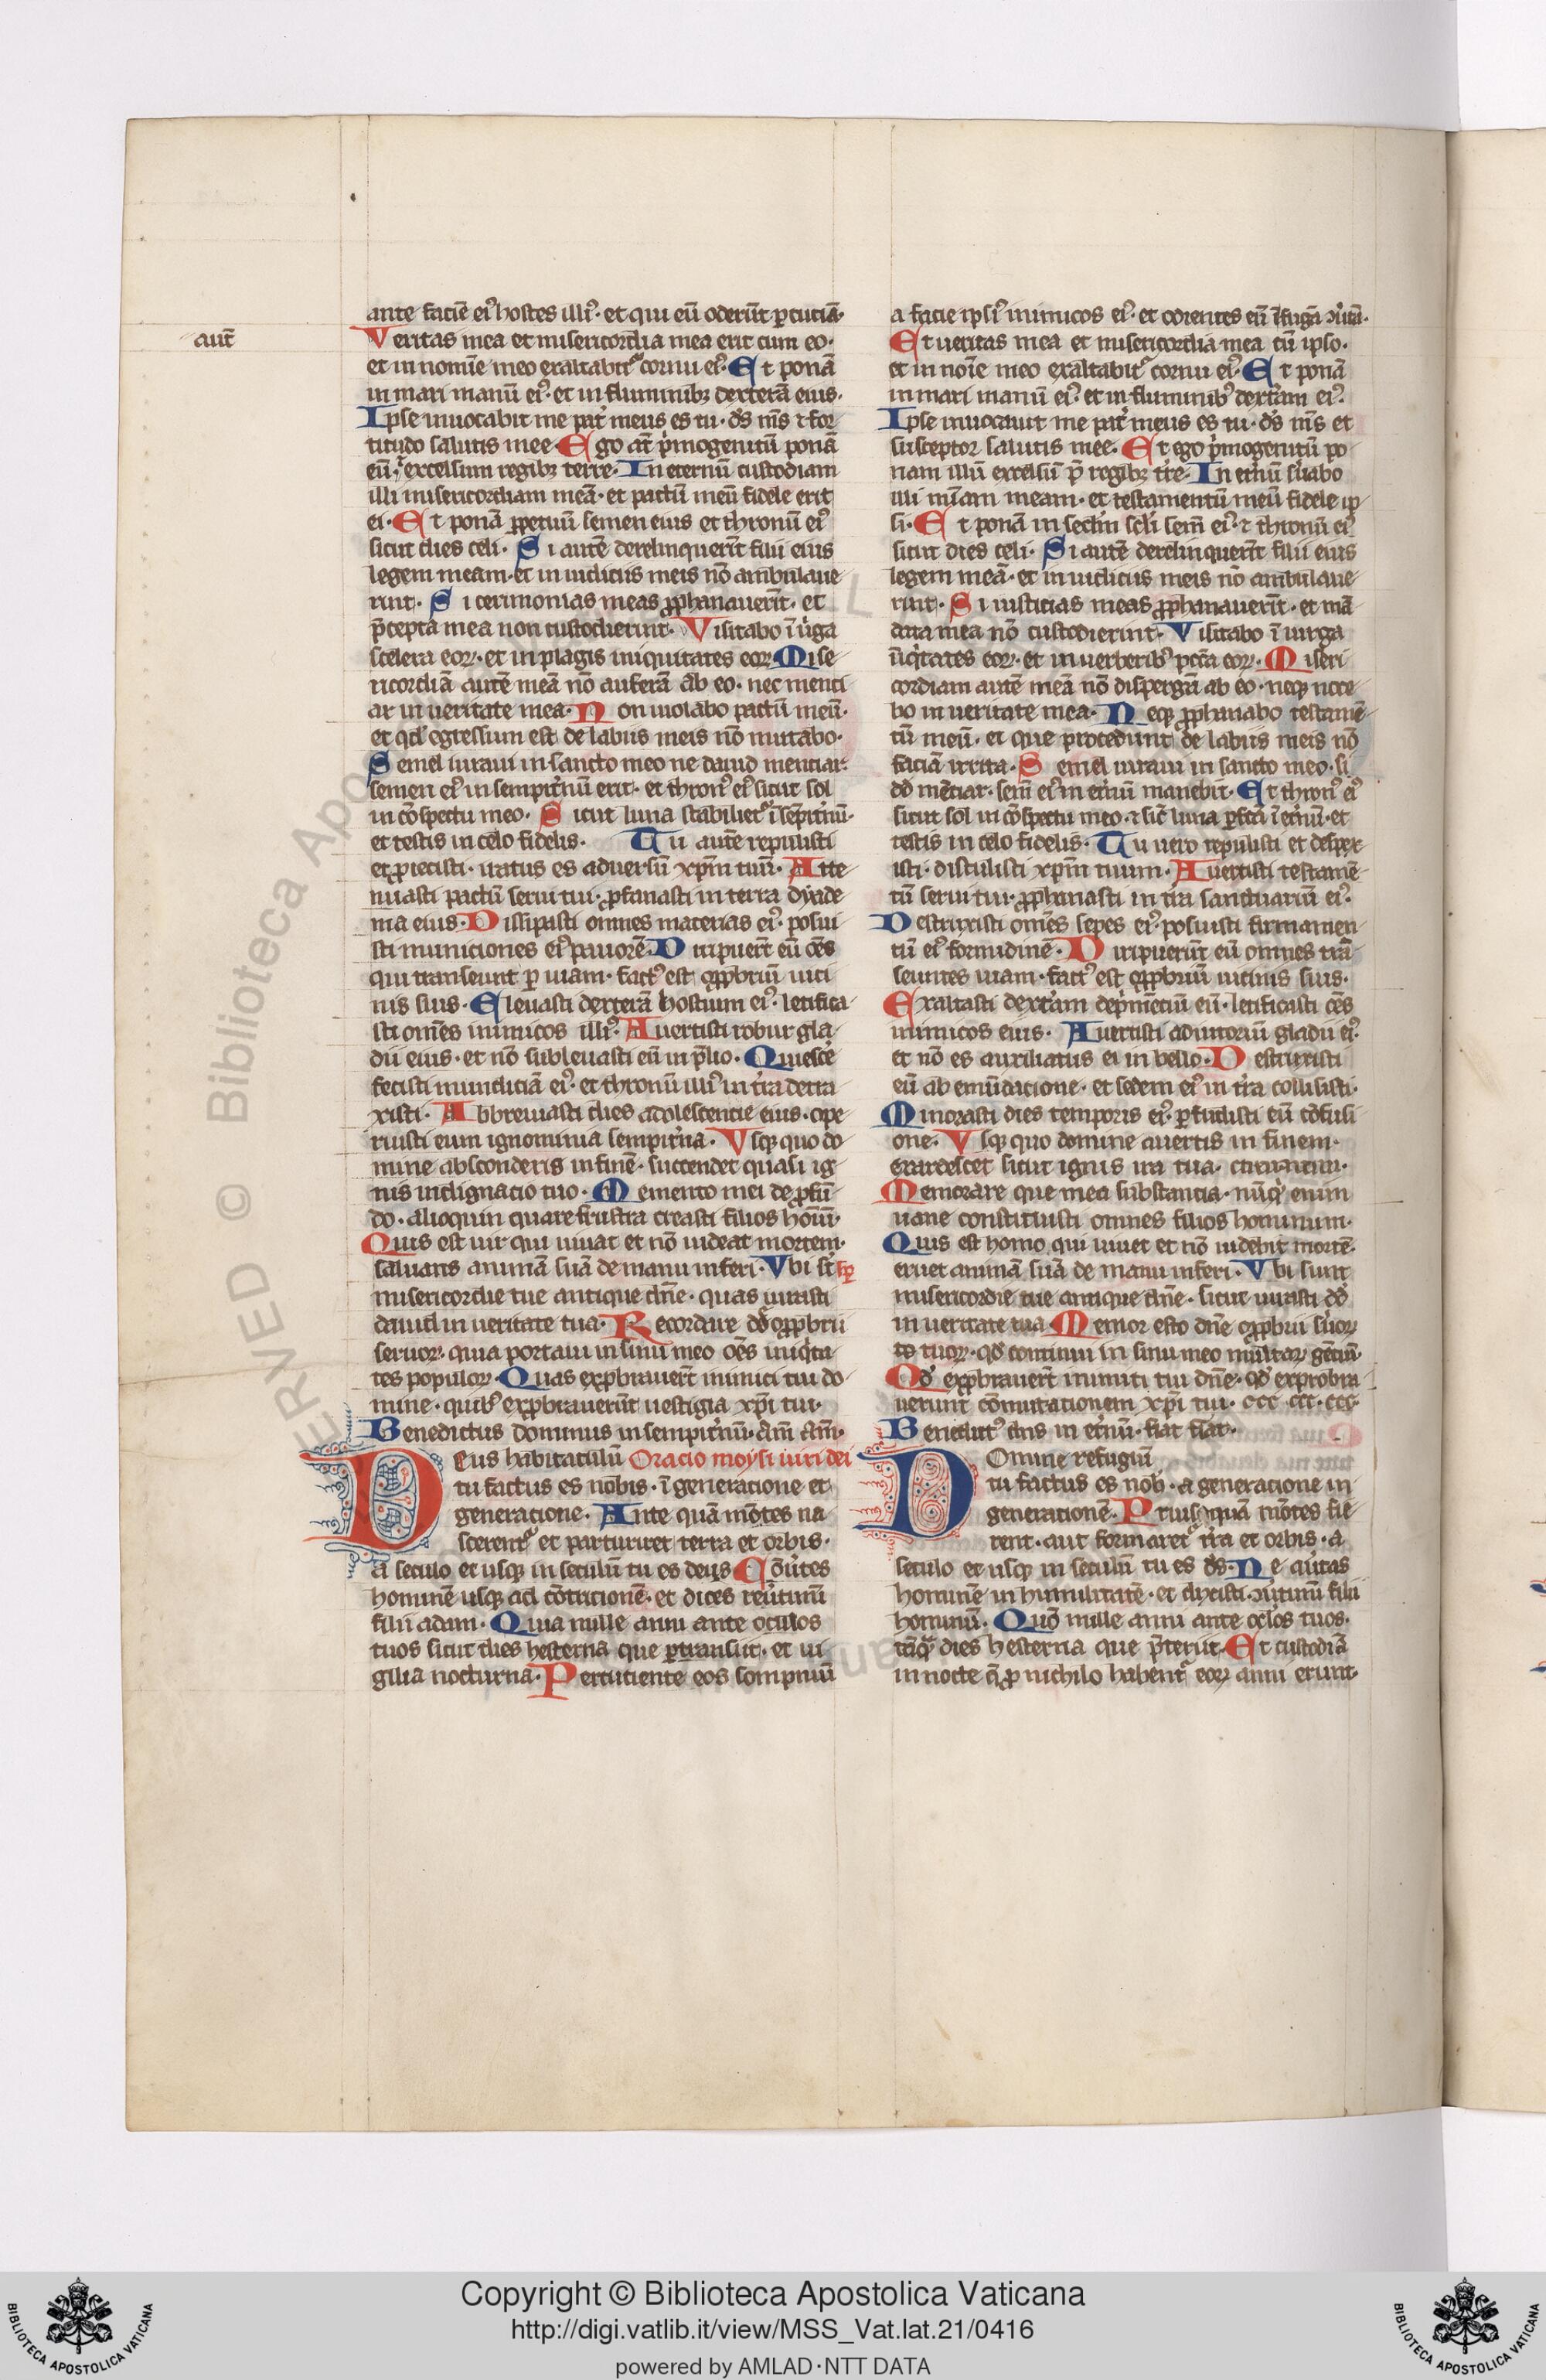 aut̄
ante facie᷑ ei᷒ hostes illi᷒· et qui eū oderūt ꝑcutiā·
Veritas mea et misericordia mea erit cum eo·
et in nomīe meo exaltabitᷣ cornu ei᷒· Et ponā
in mari manū ei᷒· et in fluminibꝫ dexterā eius·
Ipse inuocabit me pat̓ meus es tu· ds̄ ms̄ ⁊ for
titudo salutis mee· Ego at̄ p̓mogenitū ponā
eū· excelsum regibꝫ terre· In eternū custodiam
illi misericordiam meā· et pactū meū fidele erit
ei· Et ponā ꝑpetuū semen eius et thronū ei᷒
sicut dies celi· Si autē derelinquerīt filii eius
legem meam· et in iudiciis meis nō ambulaue
rint· Si cerimonias meas ꝓphanauerīt· et
p̄cepta mea non custodierint· Visitabo ī u̓ga
scelera eoꝝ· et in plagis iniquitates eoꝝ Mise
ricordiā autē meā nō auferā ab eo· nec menti
ar in veritate mea· Non uiolabo pactū meū·
et qd̓ egressum est de labiis meis nō mutabo·
Semel iuraui in sancto meo ne dauid mentiar·
semen ei᷒ in sempit̓nū erit· et thron᷒ ei᷒ sicut sol
in cōspectu meo· Sicut luna stabilietᷣ ī sēpit̓nū·
et testis in celo fidelis· Tu autē repulisti
et ꝓiecisti· iratus es aduersū xp̄m tuū· Atte
nuasti pactū serui tui· ꝓfanasti in terra dyade
ma eius· Dissipasti omnes macerias ei᷒· posui
sti municiones ei᷒ pauorē· Diripuerūt eū oēs
qui transeunt ꝑ uiam· fact᷒ est opꝓbriū uici
nis suis· Eleuasti dexterā hostium ei᷒· letifica
sti omēs inimicos illi᷒· Auertisti robur gla
dii eius· et nō subleuasti eū in p̄lio· Quiesce᷑
fecisti mundiciā ei᷒· et thronū illi᷒ in t̓ra detra
xisti· Abbreuiasti dies adolescentie eius· ope
ruisti eum ignominia sempit̓na· Vsqꝫ quo do
mine absconderis in finē· succendet quasi ig
nis indignacio tuo· Memento mei de ꝓfū
do· alioquin quare frustra creasti filios hoīū·
Quis est uir qui uiuat et nō uideat mortem·
saluans animā suā de manu inferi· Vbi st̄
misericordie tue antique dn̄e· quas iurasti
dauid in ueritate tua· Recordare dn̄e opꝓbrii
seruoꝝ· quia portaui in sinu meo oēs iniq̓ta
tes populoꝝ· Quas exꝓbrauerūt inimici tui do
mine· quib᷒ exꝓbrauerūt uestigia xp̄i tui·
Benedictus dominus in sempit̓nū· am̄ am̄·
Deus habitaculū Oracio moysi uiri dei
tu factus es nobis· ī generacione et
generacione· Ante quā mōtes na
scerentᷣ et parturiret terra et orbis·
a seculo et usqꝫ in seculū tu es deus Cōu̓tes
hominē usqꝫ ad cōtricionē· et dices reu̓timī
filii adam· Quia mille anni ante oculos
tuos sicut dies hesterna que ꝑtransiit· et ui
gilia nocturna· Percutiente eos sompniū
a facie ipsi᷒ inimicos ei᷒· et odientes eū ī fugā ꝯu̓tā·
Et ueritas mea et misericordia mea cū ipso·
et in noīe meo exaltabitᷣ cornu ei᷒· Et ponā
in mari manū ei᷒· et in fluminib᷒ dext̓am ei᷒·
Ipse inuocauit me pat̓ meus es tu· ds̄ ms̄ et
susceptor salutis mee· Et ego p̓mogenitū po
nam illū excelsū p̄ regibꝫ t̓re· In et̓nū s̓uabo
illi mīam meam· et testamentū meū fidele ip
si· Et ponā in sclm̄ scli̓ sem̄ ei᷒· ⁊ thronū ei᷒
sicut dies celi· Si autē derelinquerīt filii eius
legem meā· et in iudiciis meis nō ambulaue
rint· Si iusticias meas ꝓphanauerīt· et mā
data mea nō custodierint· Visitabo ī uirga
iīq̓tates eoꝝ· et in uerberib᷒ pcc̄a eoꝝ· Miseri
cordiam autē meā nō dispergā ab eo· neqꝫ noce
bo in ueritate mea· Neqꝫ ꝓphanabo testamē
tū meū· et que procedunt de labiis meis nō
faciā irrita· Semel iuraui in sancto meo· si
dd̄ mētiar· sem̄ ei᷒ in et̓nū manebit· Et thron᷒ ei᷒
sicut sol in cōspectu meo· ⁊ sic̄ luna ꝑfc̄a ī et̓nū· et
testis in celo fidelis· Tu uero repulisti et despex
isti· distulisti xp̄m tuum· Auertisti testamē
tū serui tui· ꝓphanasti in t̓ra sanctuariū ei᷒·
Destruxisti omēs sepes ei᷒· posuisti firmamen
tū ei᷒ formidinē· Diripuerūt eū omnes trā
seuntes uiam· fact᷒ est opꝓbriū uicinis suis·
Exaltasti dext̓am dep̓mētiū eū· letificasti oēs
inimicos eius· Auertisti adiutoriū gladii ei᷒·
et nō es auxiliatus ei in bello· Destruxisti
eū ab emūdacione· et sedem ei᷒ in t̓ra collisisti·
Minorasti dies temporis ei᷒· ꝑfudisti eū cōfusi
one· Vsqꝫ quo domine auertis in finem·
exardescet sicut ignis ira tua·
Memorare que mea substancia· nūq̓d enim
uane constituisti omnes filios hominum·
Quis est homo qui uiuet et nō uidebit mortē·
eruet animā suā de manu inferi· Vbi sunt
misericordie tue antique dn̄e· sicut iurasti dd̄
in ueritate tua Memor esto dn̄e opꝓbrii s̓uoꝝ
tuoꝝ· qd̓ continui in sinu meo multaꝝ gētiū·
Qd̓ exꝓbrauerūt inimici tui dn̄e· qd̓ exprobra
uerunt cōmutacionem xp̄i tui·
Benedict᷒ dn̄s in et̓nū· fiat fiat·
Domine refugiū
tu factus es nob̄· a generacione in
generacionē· Priusquā mōtes fie
rent· aut formaretᷣ t̓ra et orbis· a
seculo et usqꝫ in seculū tu es ds̄· Ne au̓tas
hominē in humilitatē· et dixisti ꝯu̓timī filii
hominū· Quō mille anni ante oc̓los tuos·
tāq̓ dies hesterna que p̄teriit· Et custodia
in nocte q̄ ꝓ nichilo habentᷣ eoꝝ anni erunt·
BIBLIOTECA APOSTOLICA VATICANA
Copyright © Biblioteca Apostolica Vaticana
http://digi.vatlib.it/view/MSS_Vat.lat.21/0416
powered by AMLAD·NTT DATA
BIBLIOTECA APOSTOLICA VATICANA